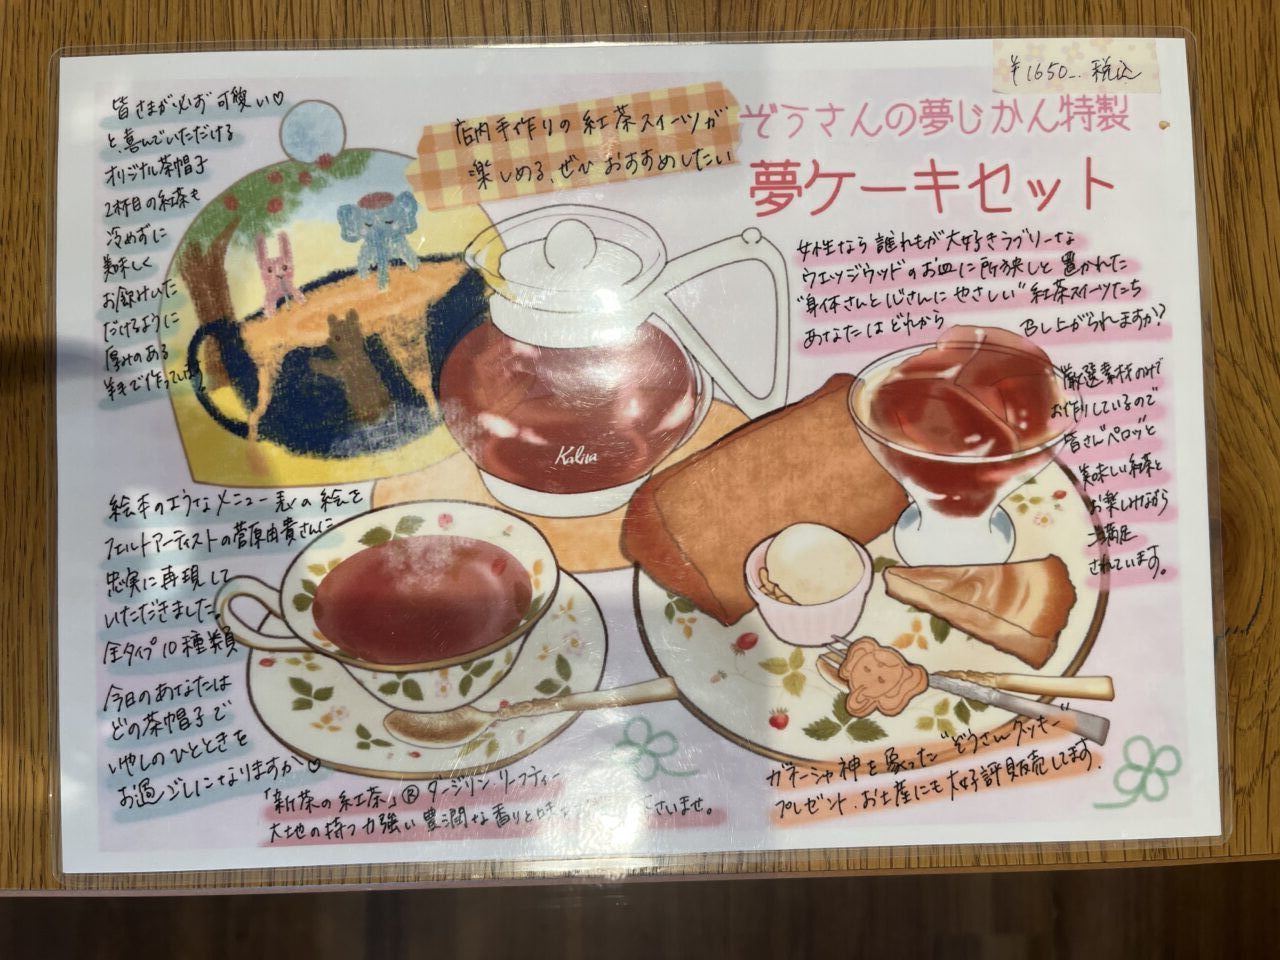 ¥1650- 税込
ぞうさんの夢じかん特製
夢ケーキセット
店内手作りの紅茶スイーツが
楽しめる、ぜひおすすめしたい
皆さまが必ず可愛い♡
と、喜んでいただける
オリジナル茶帽子
2杯目の紅茶も
冷めずに
美味しく
お飲みいた
だけるように
厚みのある
羊毛で作ってい
女性なら誰もが大好きラブリーな
ウェッジウッドのお皿に所狭しと置かれた
"身体さんと心さんにやさしい"紅茶スイーツたち
あなたはどれから
召し上がられますか?
厳選素材のみで
お作りしているので
皆さんペロッと
美味しい紅茶と
お楽しみながら
ご満足
されています。
Kalita
絵本のようなメニュー表の絵を
フェルトアーティストの菅原由貴さんに
忠実に再現して
いただきました
全タイプ10種類
今日のあなたは
どの茶帽子で
いやしのひとときを
お過ごしになりますか♡
「新茶の紅茶」® ダージリンリーフティー
大地の持つ力強い豊潤な香りと味を
さいませ。
ガネーシャ神を象った"ぞうさんクッキー"
プレゼント、お土産にも大好評販売してます。